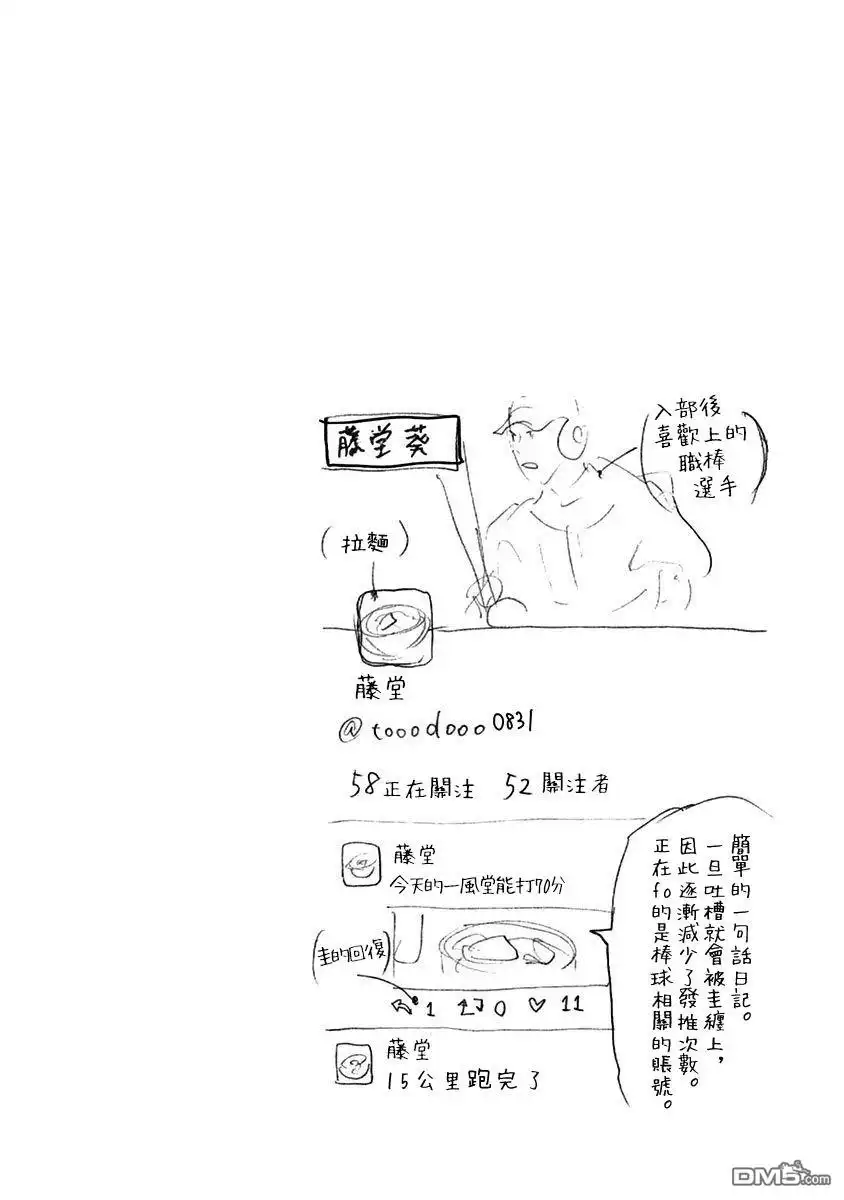 藤堂葵
入部後
喜歡上的
職棒
選手
(拉麵)
藤堂
@tooodooo0831
58正在關注 52關注者
藤堂
今天的一風堂能打70分
(圭的回復)
1 0 11
藤堂
15公里跑完了
簡單的一句話日記。
一旦吐槽就會被圭纏上,
因此逐漸減少了發推次數。
正在fo的是棒球相關的賬號。
DM5.com